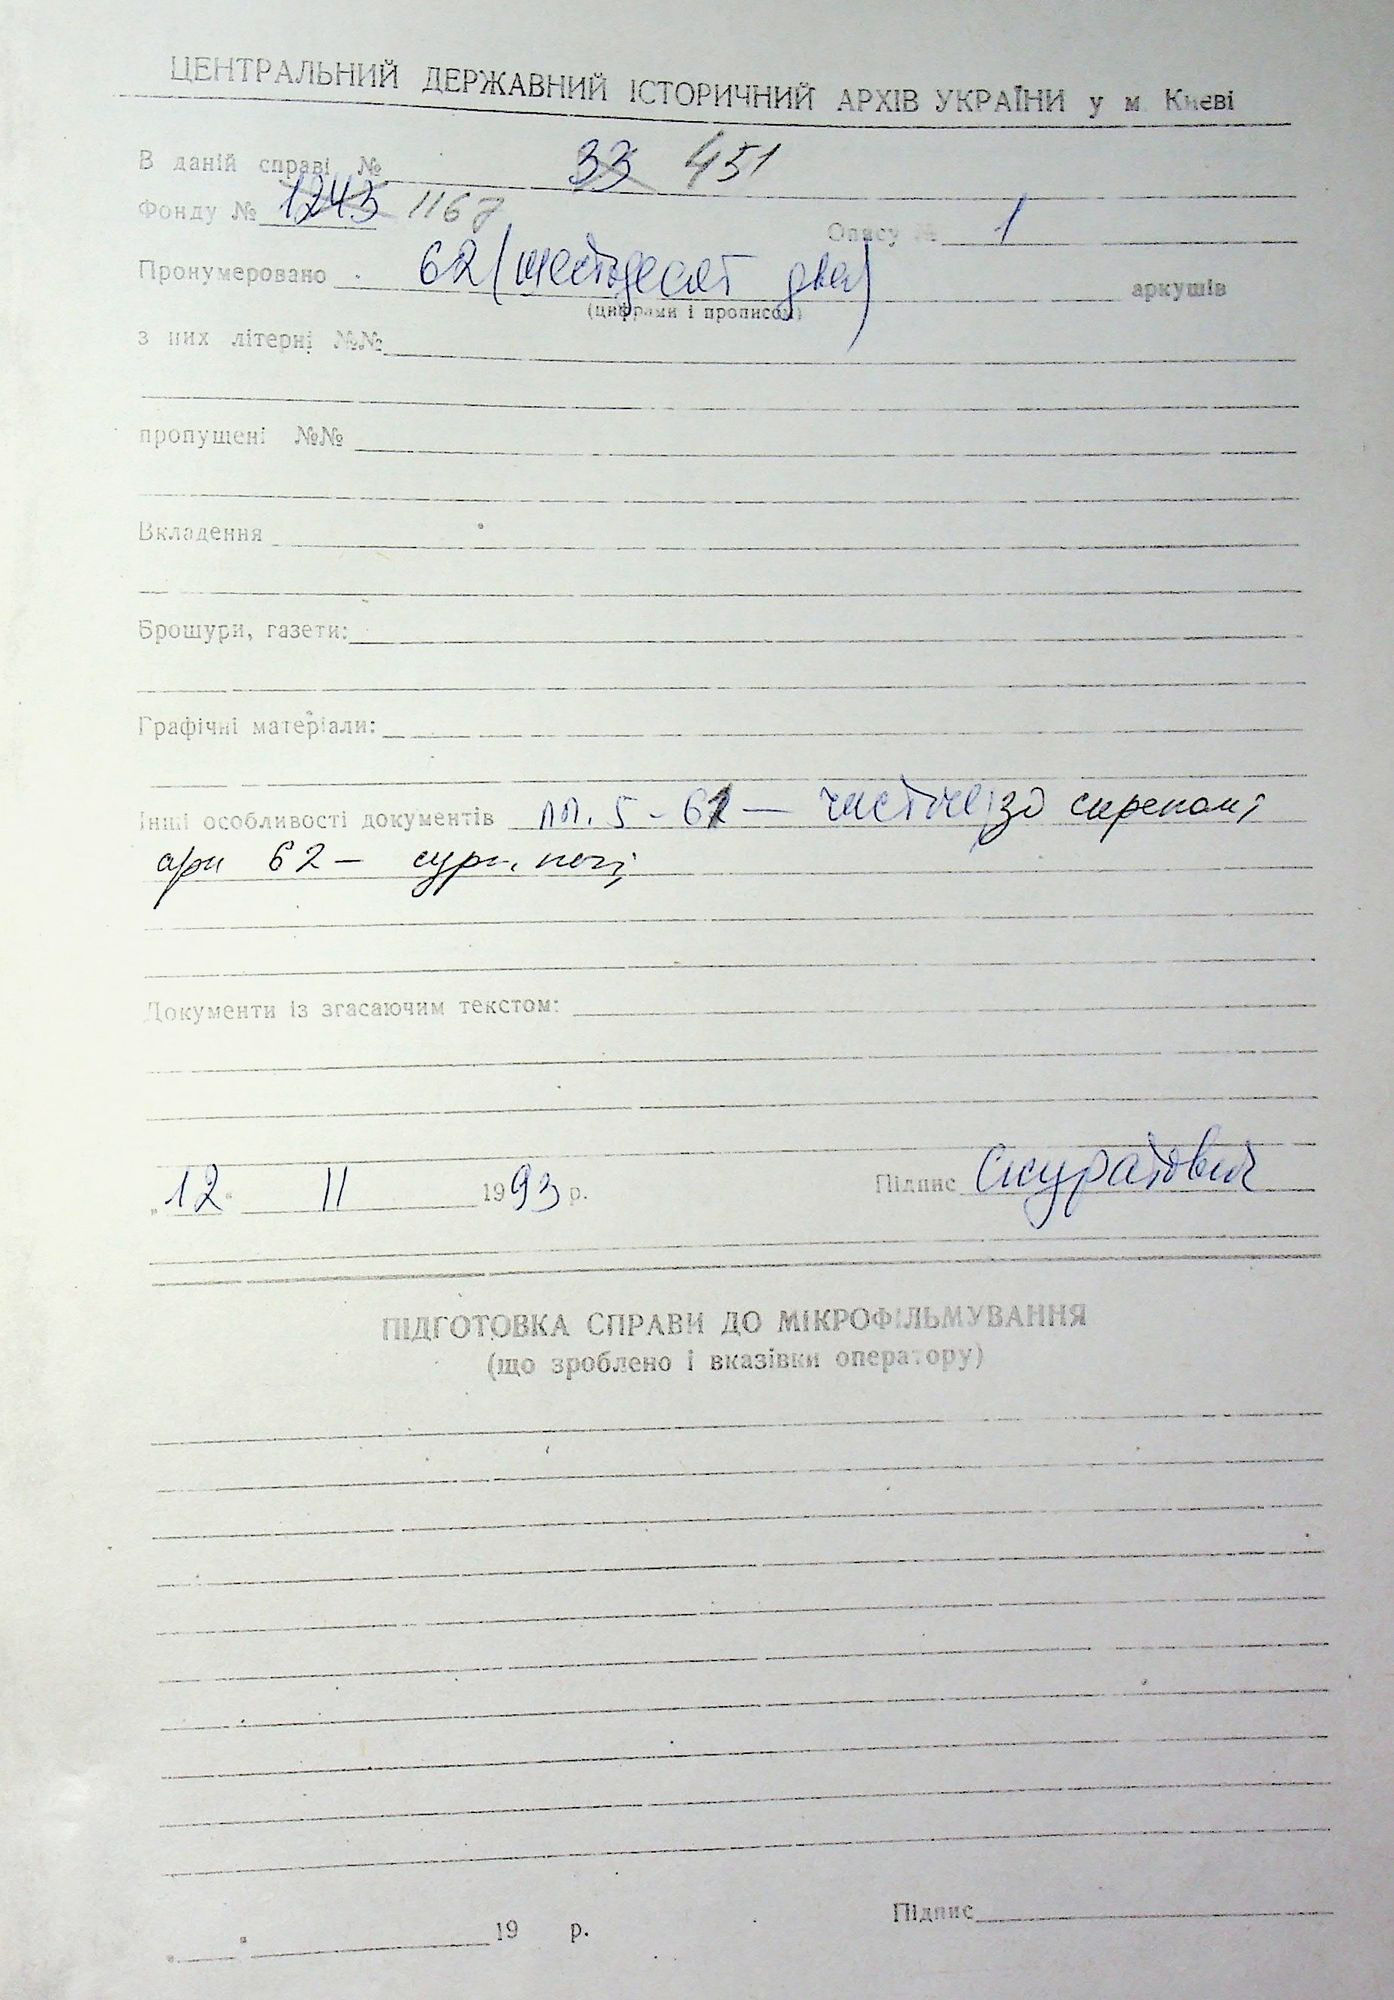 ЦЕНТРАЛЬНИЙ ДЕРЖАВНИЙ ІСТОРИЧНИЙ АРХІВ УКРАЇНИ у м Києві
В даній справі № 33 451
Фонду № 1243 1167 Опису № 1
Пронумеровано 62 (шестьдесят два) аркушів
(цифрами і прописом)
з них літерні №№
пропущені №№
Вкладення
Брошури, газети:
Графічні матеріали:
Інші особливості документів лл. 5 - 61 — чистые, зо скрепом;
арк 62 — сург. печ;
Документи із згасаючим текстом:
„12“ II 1993 р. Підпис Скуратович
ПІДГОТОВКА СПРАВИ ДО МІКРОФІЛЬМУВАННЯ
(що зроблено і вказівки оператору)
„ “ 19 р. Підпис